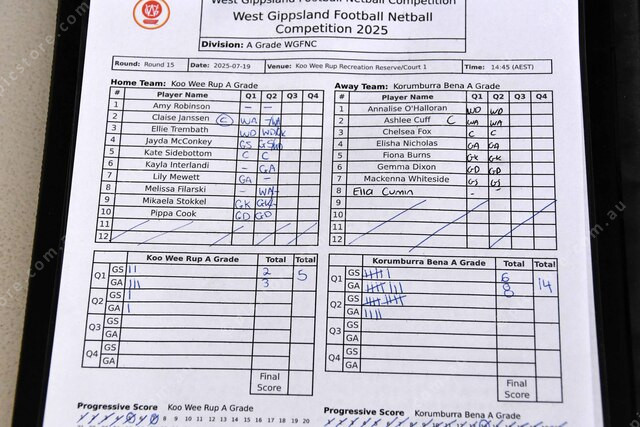 West Gippsland Football Netball Competition
West Gippsland Football Netball
Competition 2025
Division: A Grade WGFNC
Round: Round 15 Date: 2025-07-19 Venue: Koo Wee Rup Recreation Reserve/Court 1 Time: 14:45 (AEST)
Home Team: Koo Wee Rup A Grade
# Player Name Q1 Q2 Q3 Q4
1 Amy Robinson - -
2 Claise Janssen C WA
3 Ellie Trembath WD
4 Jayda McConkey GS
5 Kate Sidebottom C C
6 Kayla Interlandi - GA
7 Lily Mewett GA -
8 Melissa Filarski - WA
9 Mikaela Stokkel GK GK
10 Pippa Cook GD GD
11
12
Away Team: Korumburra Bena A Grade
# Player Name Q1 Q2 Q3 Q4
1 Annalise O'Halloran WD WD
2 Ashlee Cuff C WA WA
3 Chelsea Fox C C
4 Elisha Nicholas GA GA
5 Fiona Burns GK GK
6 Gemma Dixon GD GD
7 Mackenna Whiteside GS GS
8 Ella Cumin -
9
10
11
12
Koo Wee Rup A Grade Total Total
Q1 GS 2 5
GA 3
Q2 GS
GA
Q3 GS
GA
Q4 GS
GA
Final
Score
Korumburra Bena A Grade Total Total
Q1 GS 6 14
GA 8
Q2 GS
GA
Q3 GS
GA
Q4 GS
GA
Final
Score
Progressive Score Koo Wee Rup A Grade
8 9 10 11 12 13 14 15 16 17 18 19 20
Progressive Score Korumburra Bena A Grade